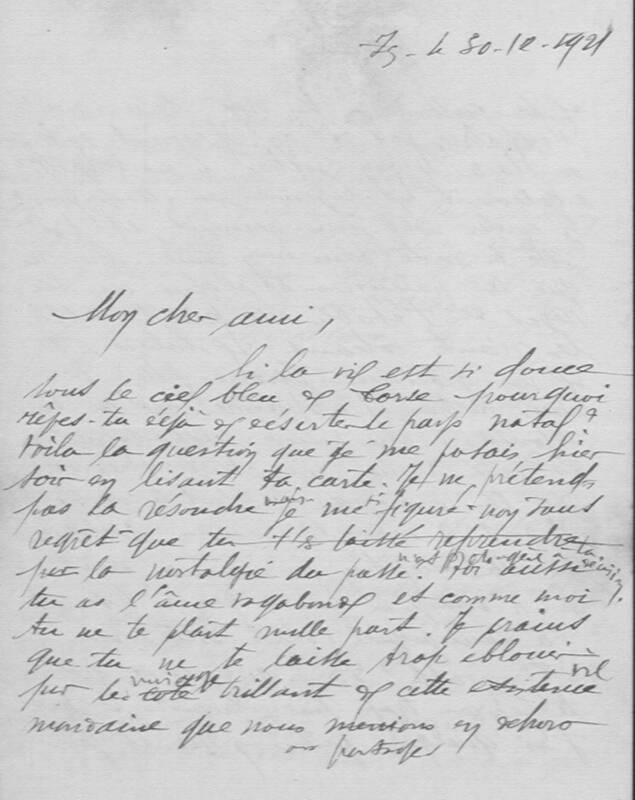 le 30-12-1921
Mon cher ami,
Si la vie est si douce
sous le ciel bleu de Corse pourquoi
rêves-tu déjà de déserter le pays natal ?
Voilà la question que je me posais hier
soir en lisant ta carte. Je ne prétends
pas la résoudre mais je me figure non sans
regret que tu t'es laissé reprendre
par la nostalgie du passé. Toi aussi
tu as l'âme vagabonde et comme moi
tu ne te plait nulle part. Je crains
que tu ne te laisse trop éblouir
par le côté mirage brillant de cette existence vie
mondaine que nous menions en dehors